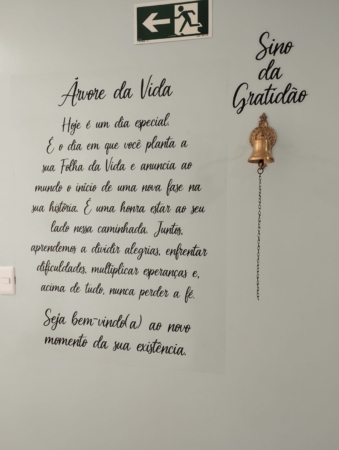 Árvore da Vida
Hoje é um dia especial.
É o dia em que você planta a
sua Folha da Vida e anuncia ao
mundo o início de uma nova fase na
sua história. É uma honra estar ao seu
lado nessa caminhada. Juntos,
aprendemos a dividir alegrias, enfrentar
dificuldades, multiplicar esperanças e,
acima de tudo, nunca perder a fé.
Seja bem-vindo(a) ao novo
momento da sua existência.
Sino
da
Gratidão